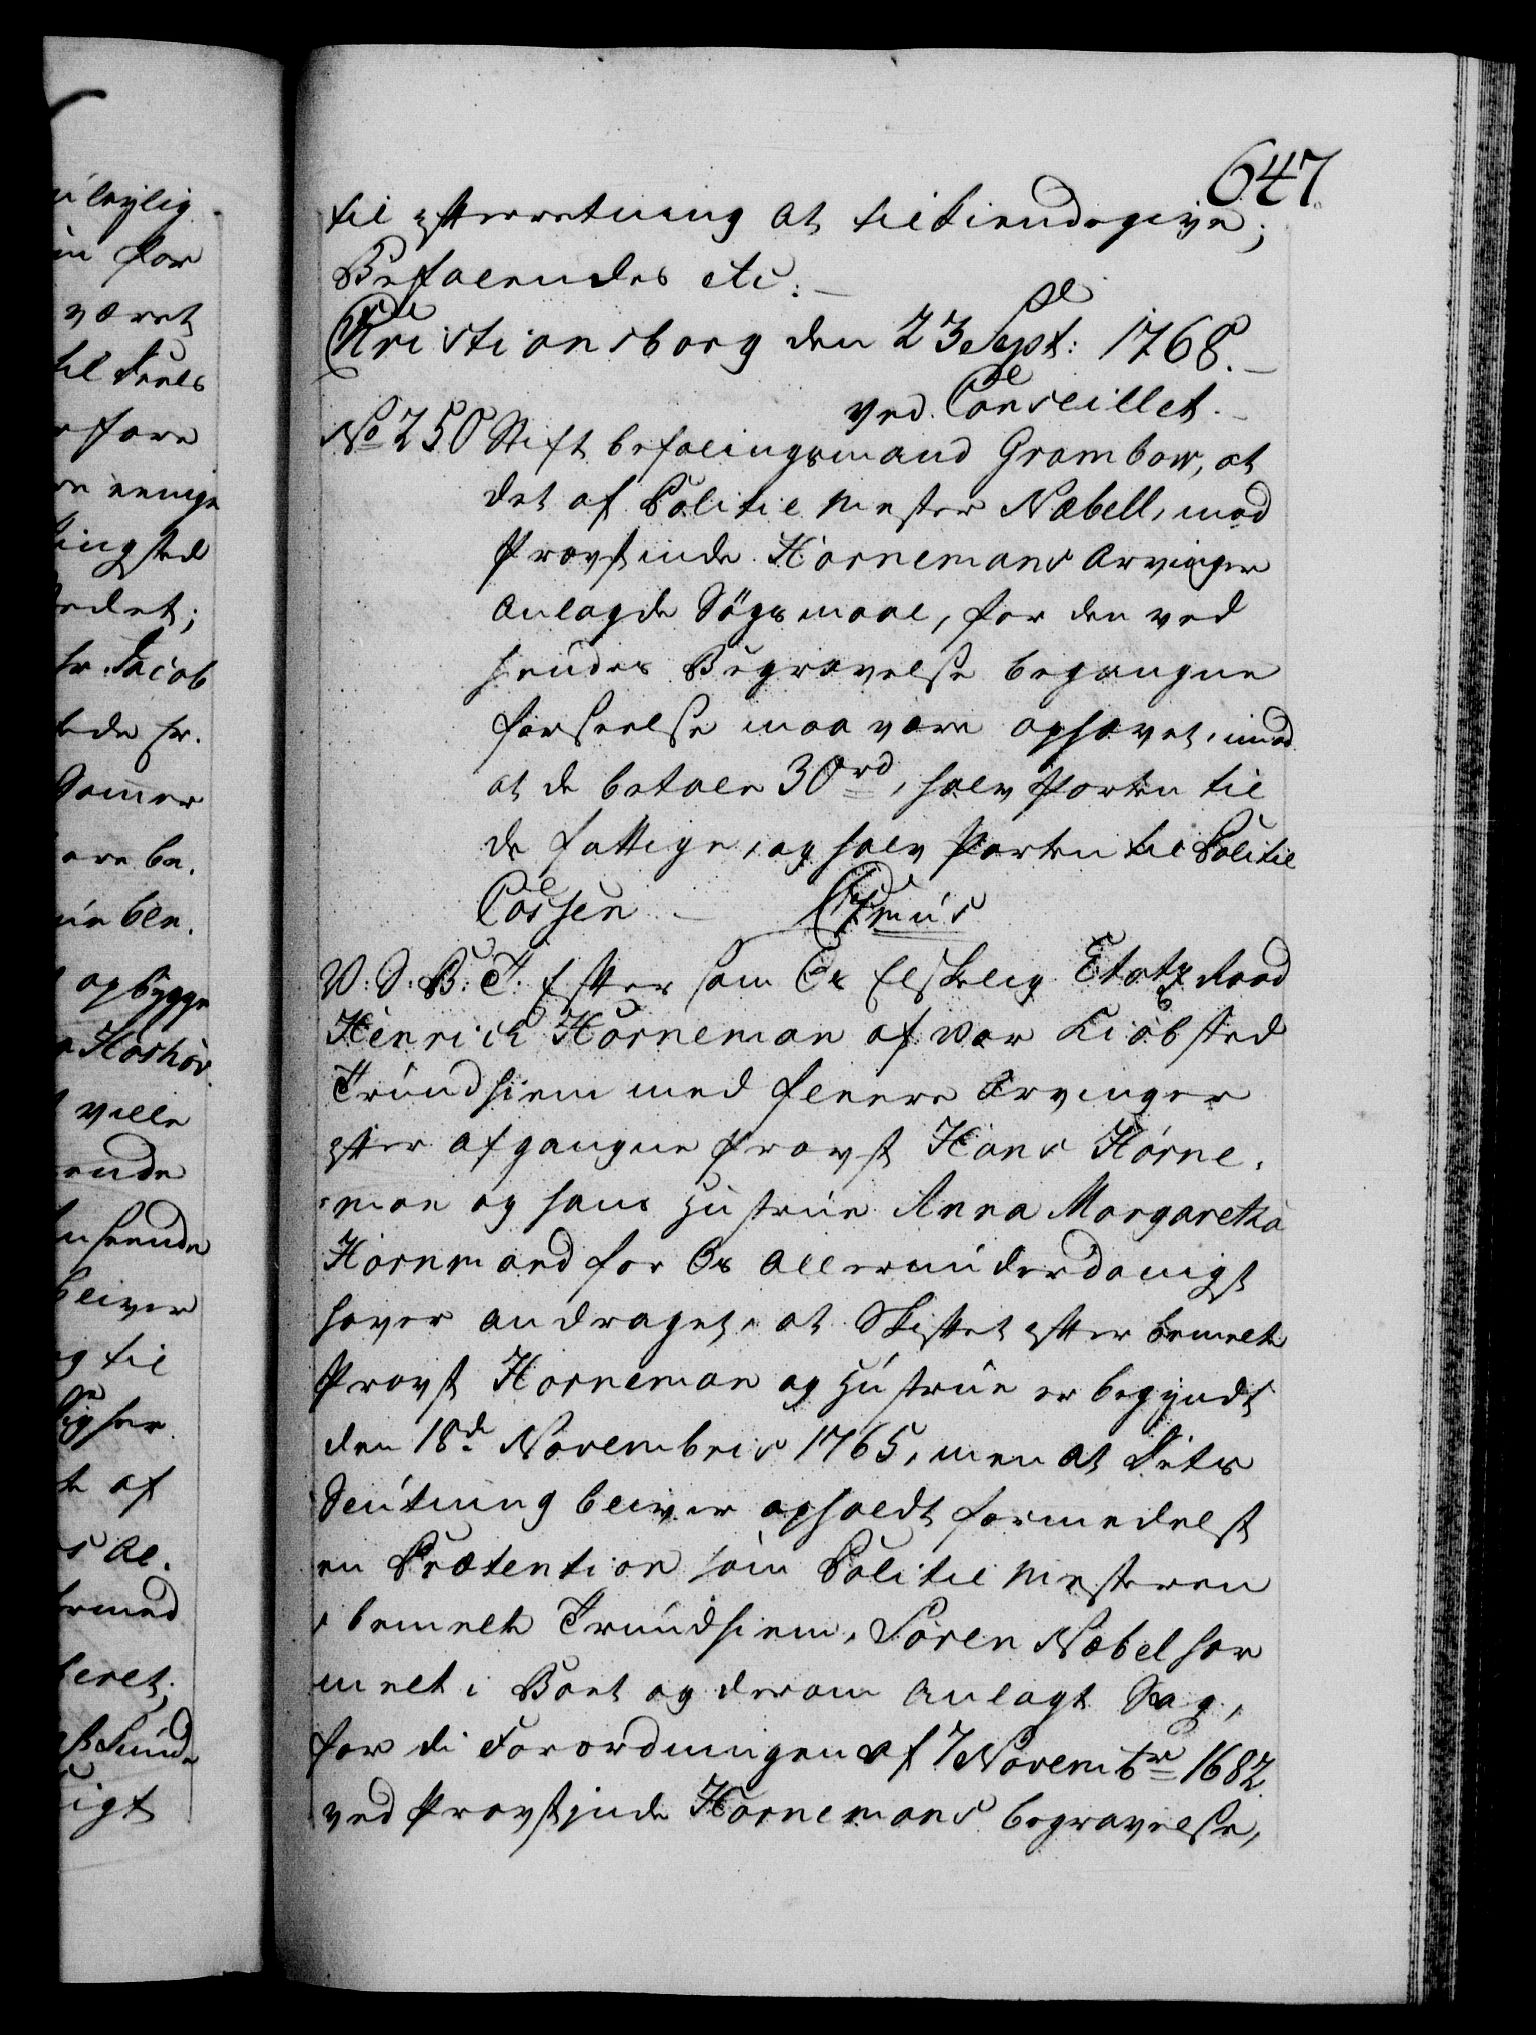 647
til efterretning at tilkiendegive;
Befalendes etc:
Christiansborg den 23 Sept: 1768.
ved Conseillet.
No 250 Stift befalingsmand Grambow, at
det af Politie Mester Næbell, mod
Provstinde Hornemans Arvinger
anlagde Søgsmaal, for den ved
hendes Begravelse begangne
forseelse maa være ophævet, imod
at de betale 30 rd, halv Parten til
de fattige, og halv Parten til Politie
Cassen
V: S: B: T: Efter som Os Elskelig Etatz Raad
Henrich Horneman af vor Kiøbsted
Trundhiem med fleere Arvinger
efter afgangne Provst Hans Horne-
man og hans Hustrue Anna Margaretha
Hornmand for Os allerunderdanigst
haver andraget, at Skiftet efter bemelte
Provst Horneman og Hustrue er begyndt
den 18de Novembris 1765, men at dets
Slutning bliver opholdt formedelst
en Prætention som Politie Mesteren
i bemelte Trundhiem, Søren Næbel har
melt i Boet og derom anlagt Sag,
for di Forordningen af 7 Novembr 1682
ved Provstinde Hornemans begravelse,